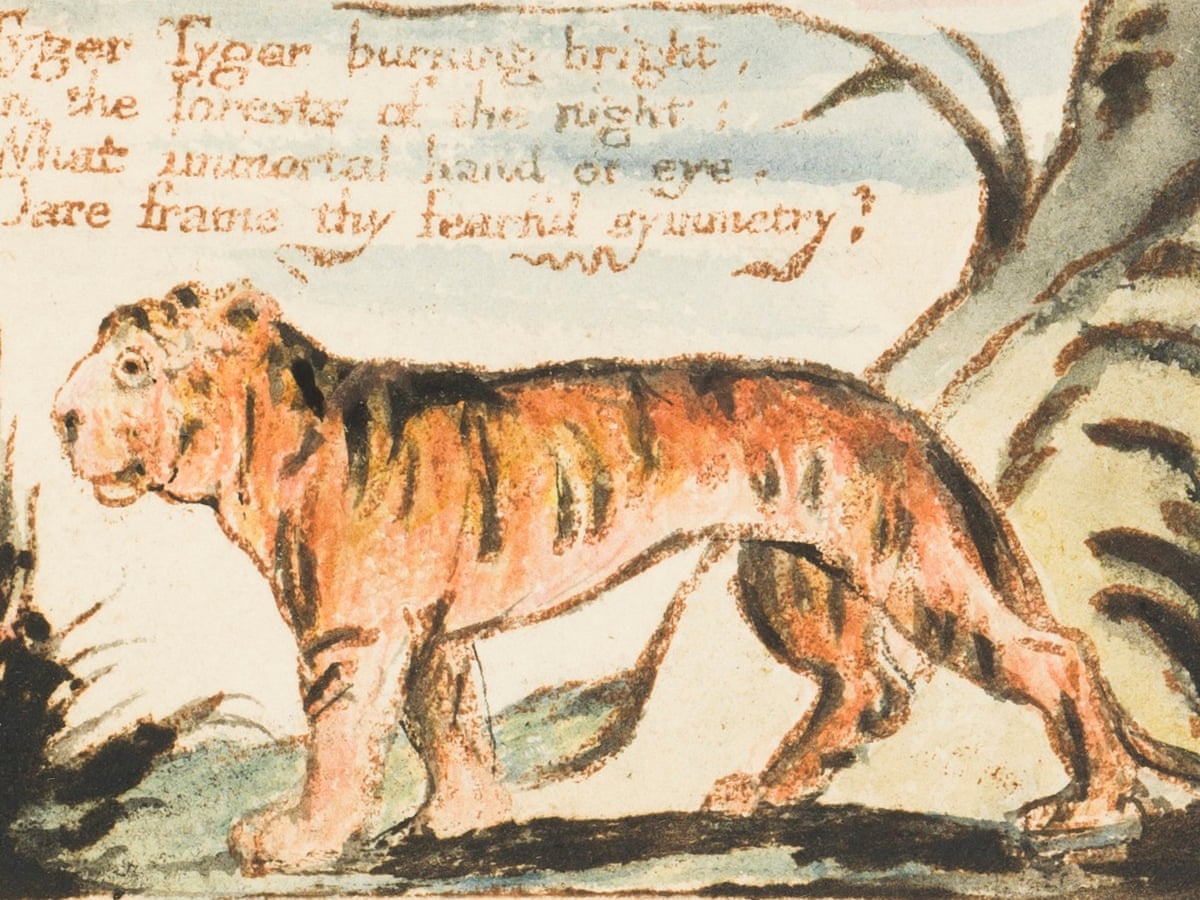 Tyger Tyger burning bright,
n the forests of the night;
What immortal hand or eye.
Dare frame thy fearful symmetry?